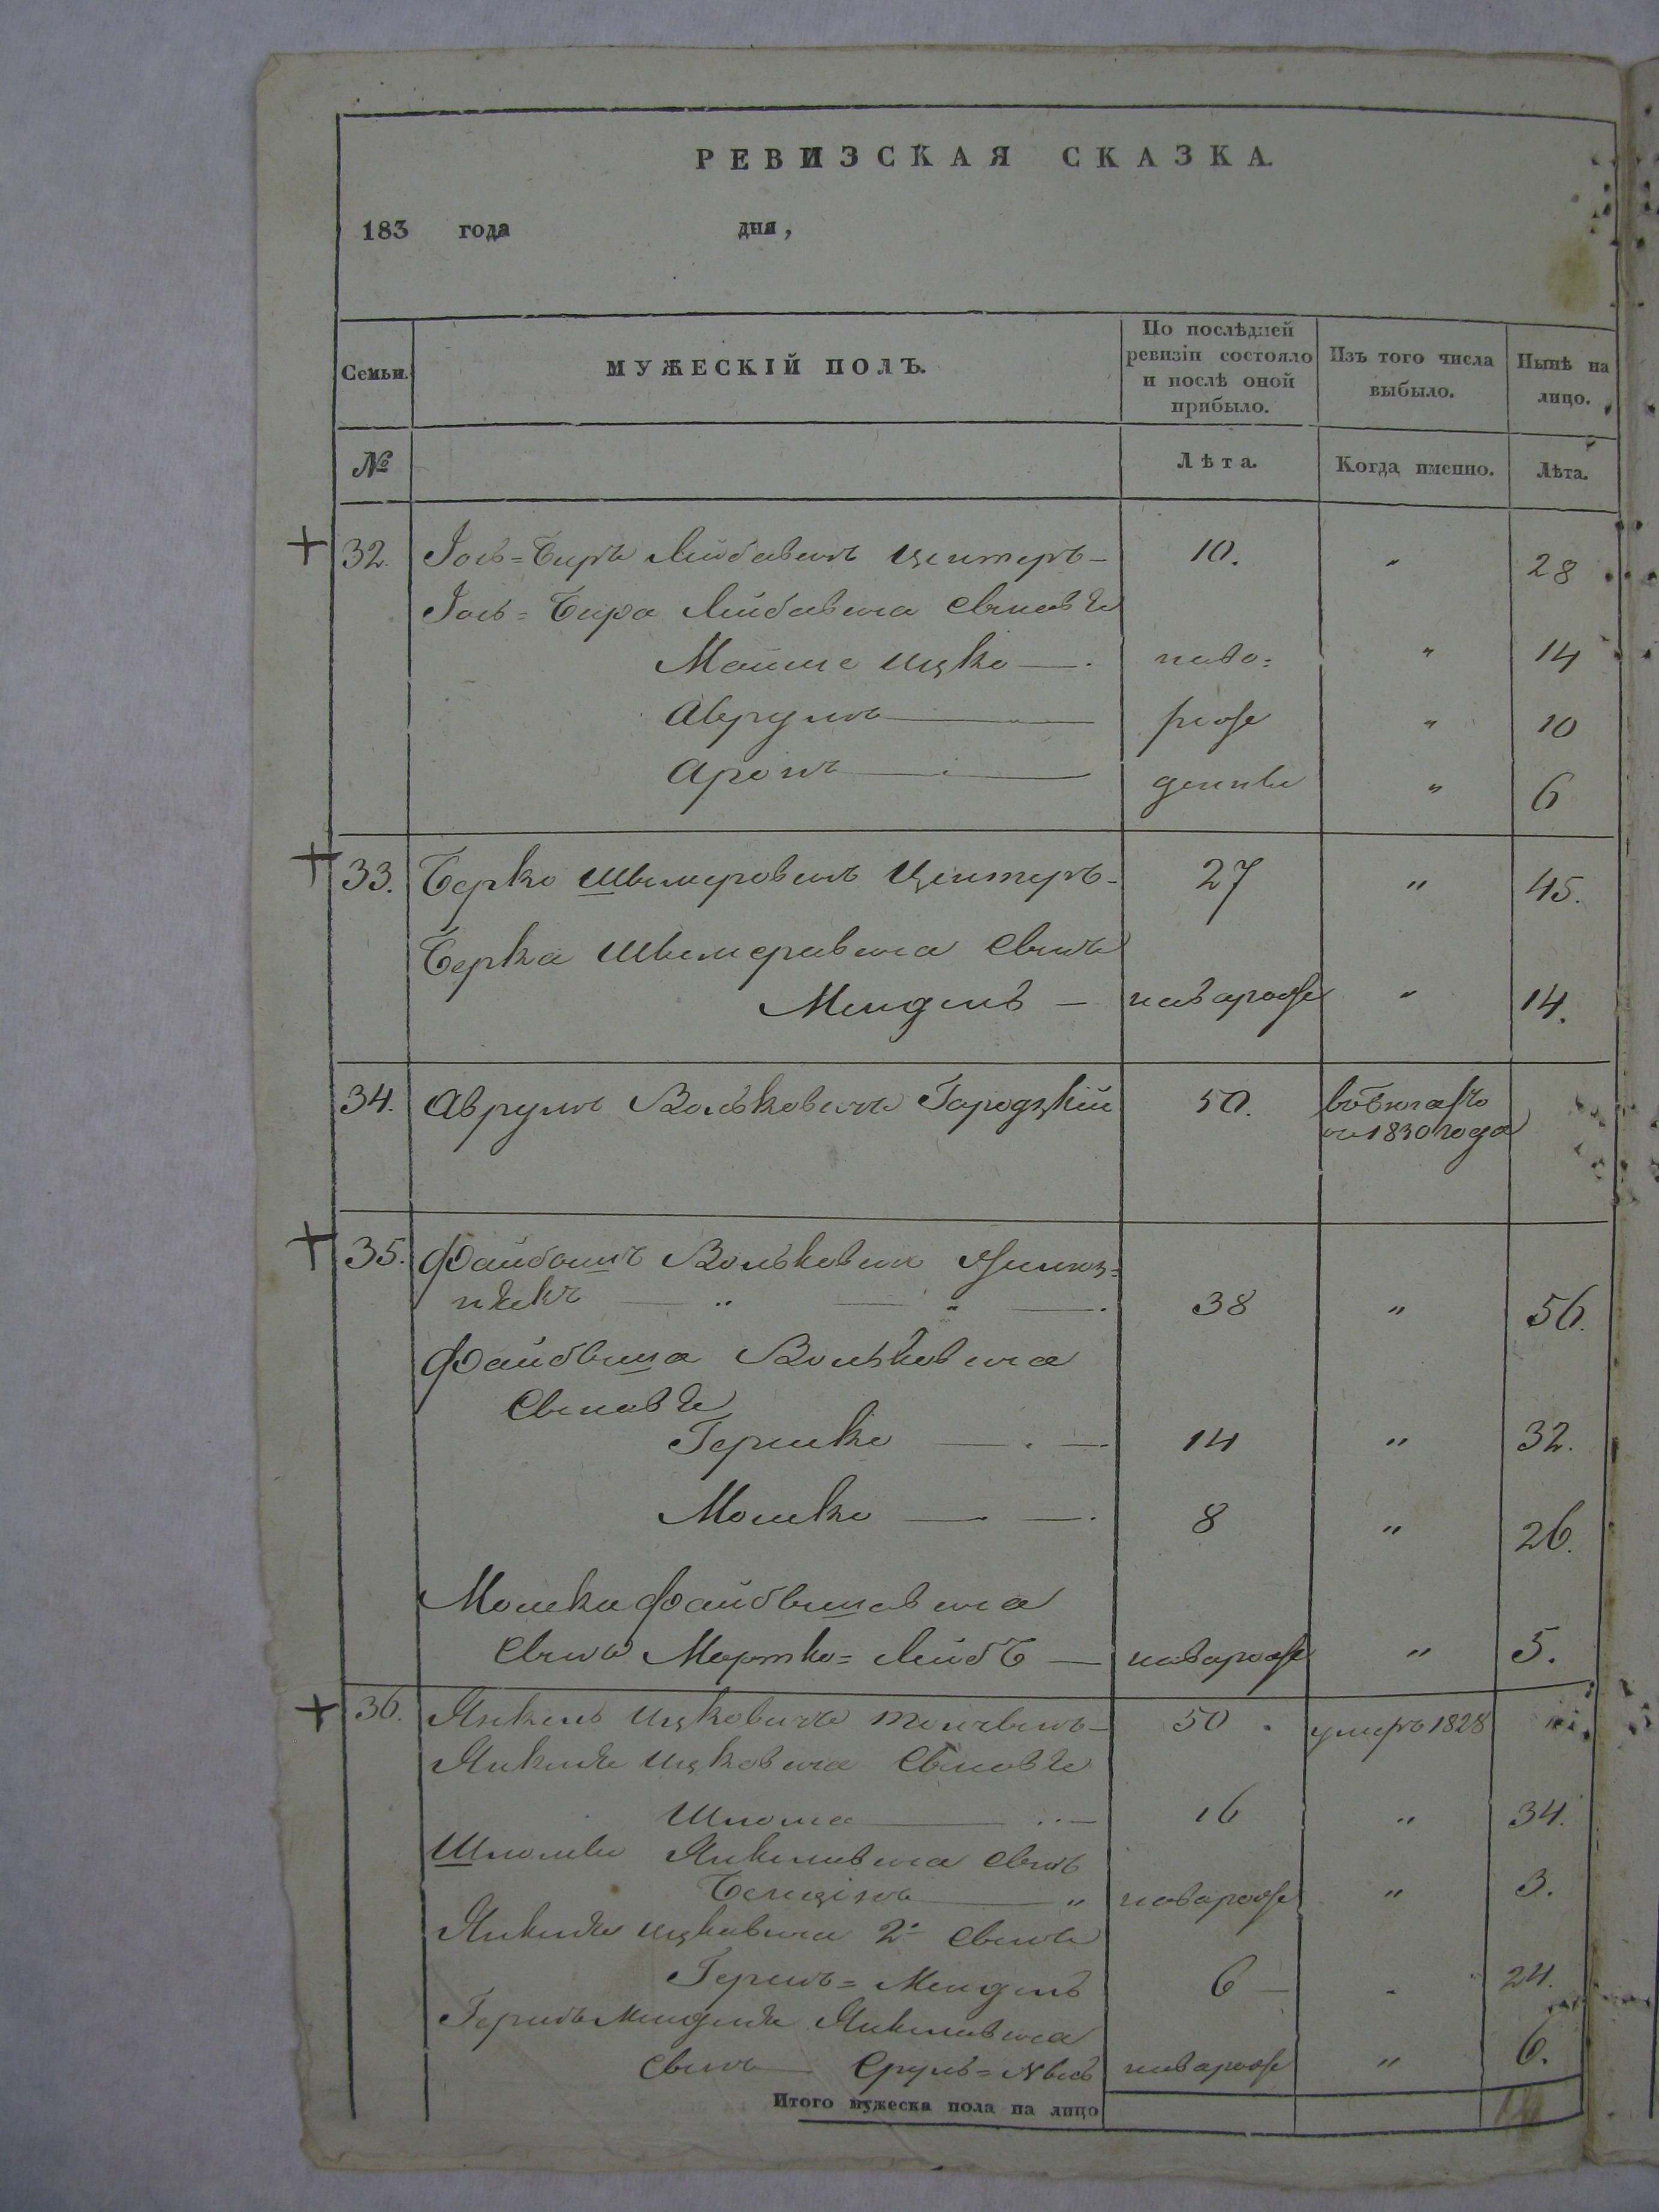 РЕВИЗСКАЯ СКАЗКА.
183 года дня,
Семьи.
МУЖЕСКІЙ ПОЛЪ.
По послѣдней
ревизіи состояло
и послѣ оной
прибыло.
Изъ того числа
выбыло.
Нынѣ на
лицо.
№
Лѣта.
Когда именно.
Лѣта.
+ 32. Іось=Беръ Лейбовичъ Цситеръ- 10. " 28
Іось=Бера Лейбовича сыновья
Мошше Ицко — ново= " 14
Аврумъ — рож " 10
Аронъ — денные " 6
+ 33. Берко Шмеровичъ Цситеръ- 27 " 45.
Берка Шмеровича сынъ
Мендель —новорож " 14.
34. Аврумъ Вольковичъ Городзкій 50. въ бегахъ
съ 1830 года
+ 35. Файбышъ Вольковичъ
никъ — " — " — 38 " 56.
Файбыша Вольковича
сыновья
Гершко — 14 " 32.
Мошко — 8 " 26.
Мошки Файбышовича
сынъ Мортко=Лейбъ —новорож " 5.
+ 36. Янкель Ицковичъ 50. умеръ 1828
Янкеля Ицковича сыновья
Шлома — 16 " 34.
Шломы Янкелевича сынъ
Бенціонъ — " новорож " 3.
Янкеля Ицковича 2й сынъ
Гершъ=Мендель 6 — " 24.
Гершъ Менделя Янкелевича
сынъ Сруль= новорож " 6.
Итого мужеска пола на лицо